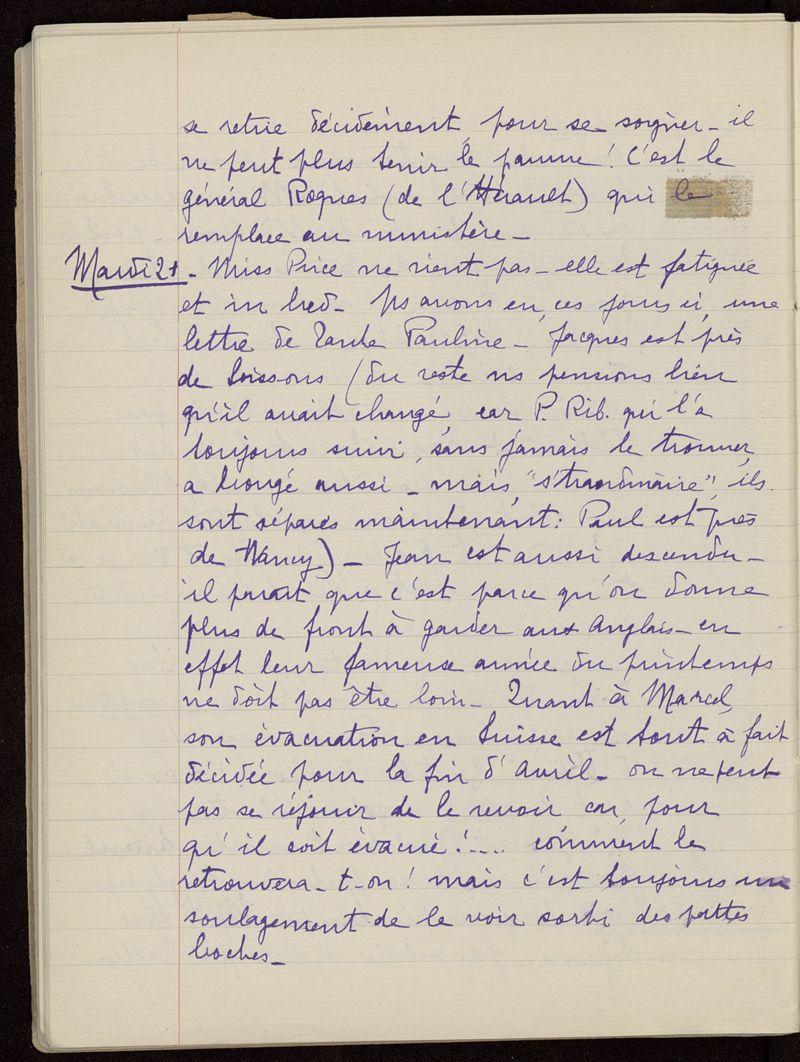 se retire décidément, pour se soigner - il
ne peut plus tenir le pauvre ! C'est le
général Roques (de l'Hérault) qui le
remplace au ministère -
Mardi 21 - Miss Price ne vient pas - elle est fatiguée
et in bed - Ns avons eu, ces jours-ci, une
lettre de Tante Pauline - Jacques est près
de Soissons (du reste ns pensions bien
qu'il avait changé, car P. Rib. qui l'a
toujours suivi, sans jamais le trouver,
a bougé aussi - mais, "s'traordinaire", ils
sont séparés maintenant : Paul est près
de Nancy) - Jean est aussi descendu -
il parait que c'est parce qu'on donne
plus de front à garder aux Anglais - en
effet leur fameuse armée du printemps
ne doit pas être loin - Quant à Marcel,
son évacuation en Suisse est tout à fait
décidée pour la fin d'Avril - on ne peut
pas se réjouir de le revoir car, pour
qu'il soit évacué !.... comment le
retrouvera-t-on ! mais c'est toujours un
soulagement de le voir sorti des pattes
boches -